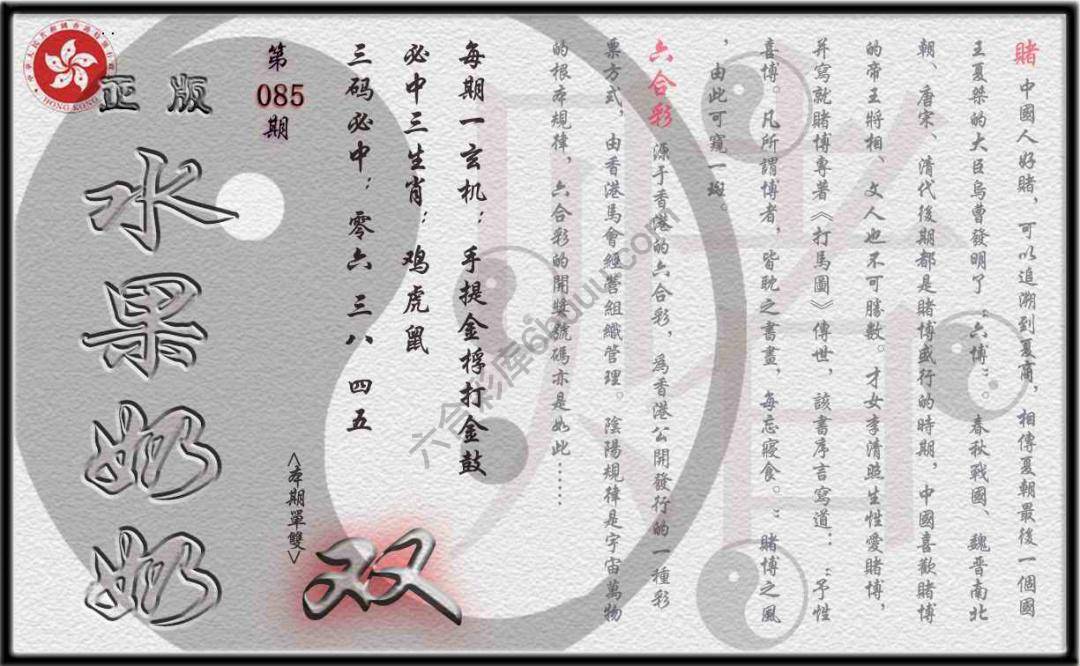 賭 中國人好賭，可以追溯到夏商，相傳夏朝最後一個國
王夏桀的大臣烏曹發明了“六博”。春秋戰國、魏晉南北
朝、唐宋、清代後期都是賭博盛行的時期，中國喜歡賭博
的帝王將相、文人也不可勝數。才女李清照生性愛賭博，
并寫就賭博專著《打馬圖》傳世，該書序言寫道：“予性
喜博。凡所謂博者，皆耽之書畫，每忘寢食。”賭博之風
，由此可窺一斑。
六合彩 源于香港的六合彩，爲香港公開發行的一種彩
票方式，由香港馬會經營組織管理。陰陽規律是宇宙萬物
的根本規律，六合彩的開獎號碼亦是如此……
每期一玄机：手提金桴打金鼓
必中三生肖：鸡虎鼠
三码必中：零六 三八 四五
第085期
<本期單雙>
双
正版
水果奶奶
HONG KONG
六合彩库6buuu.com
賭